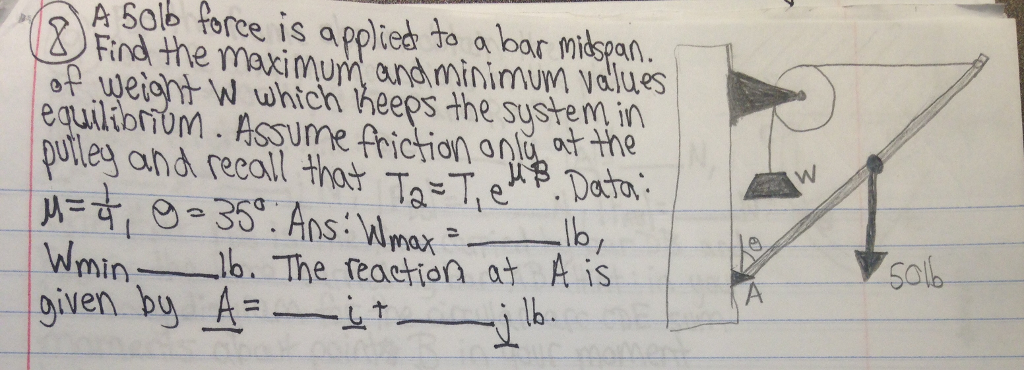 8 A 50lb force is applied to a bar midspan.
Find the maximum, and minimum values
of weight W which keeps the system in
equilibrium. Assume friction only at the
pulley and recall that T₂=T₁e^μβ. Data:
μ=1/4, θ=35°. Ans: Wmax = ____lb,
Wmin ____lb. The reaction at A is
given by A= ___ i + ____ j lb.
W
θ
50lb
A